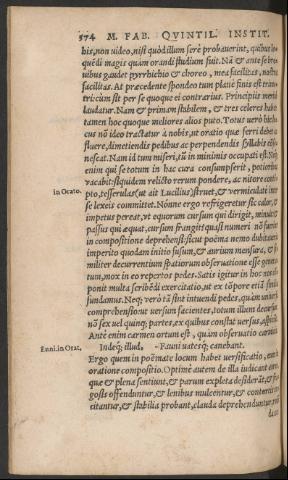 574 M. FAB. QVINTIL. INSTIT.
bis, non video, nisi quòd illum ferè probauerint, quibus
quẽdi magis quàm orandi studium fuit. Nã & ante se bre
uibus gaudet pyrrhichio & choreo, mea facilitas, nostra
facilitas. At præcedente spondeo tum planè finis est
tri: cùm sit per se quoque ei contrarius. Principiis
laudatur. Nam & primam stabilem, & tres celeres habet:
tamen hoc quoque meliores alios puto. Totus uerò hic lo
cus nõ ideo tractatur à nobis, ut oratio quæ ferri debet ac
fluere, dimetiendis pedibus ac perpendendis syllabis cõse
nescat. Nam id tum miseri, tũ in minimis occupati est. Neq;
enim qui se totum in hac cura consumpserit, potioribus
vacabit: siquidem relicto rerum pondere, ac nitore contẽ
in Orato. pto, tesserulas (ut ait Lucilius) struet, & vermiculatè inter
se lexeis committet. Nónne ergo refrigeretur sic calor, &
impetus pereat, vt equorum cursum qui dirigit, minuit; &
passus qui æquat, cursum frangit? quasi numeri nõ
in compositione deprehensi: sicut poëma nemo dubitauerit
imperito quodam initio fusum, & aurium mensura, & si
militer decurrentium spatiorum obseruatione esse genera
tum, mox in eo repertos pedes. Satis igitur in hoc nos
ponit multa scribẽdi exercitatio, ut ex tẽpore etiã similia
fundamus. Neq; verò tã sint intuendi pedes, quàm vniuersa
comprehensio: versum facientes, totum illum decursum,
nõ sex uel quinq; partes, ex quibus constat versus, aspiciũt.
Ante enim carmen ortum est, quàm obseruatio carminis.
Enni. in Orat. Indeq; illud, -Fauni vatesq; canebant.
Ergo quem in poëmate locum habet versificatio, eum in
oratione compositio. Optimè autem de illa iudicant aures,
quæ & plena sentiunt, & parum expleta desiderãt, &
gosis offenduntur, & lenibus mulcentur, & contortis ex
citantur, & stabilia probant, clauda deprehendunt,